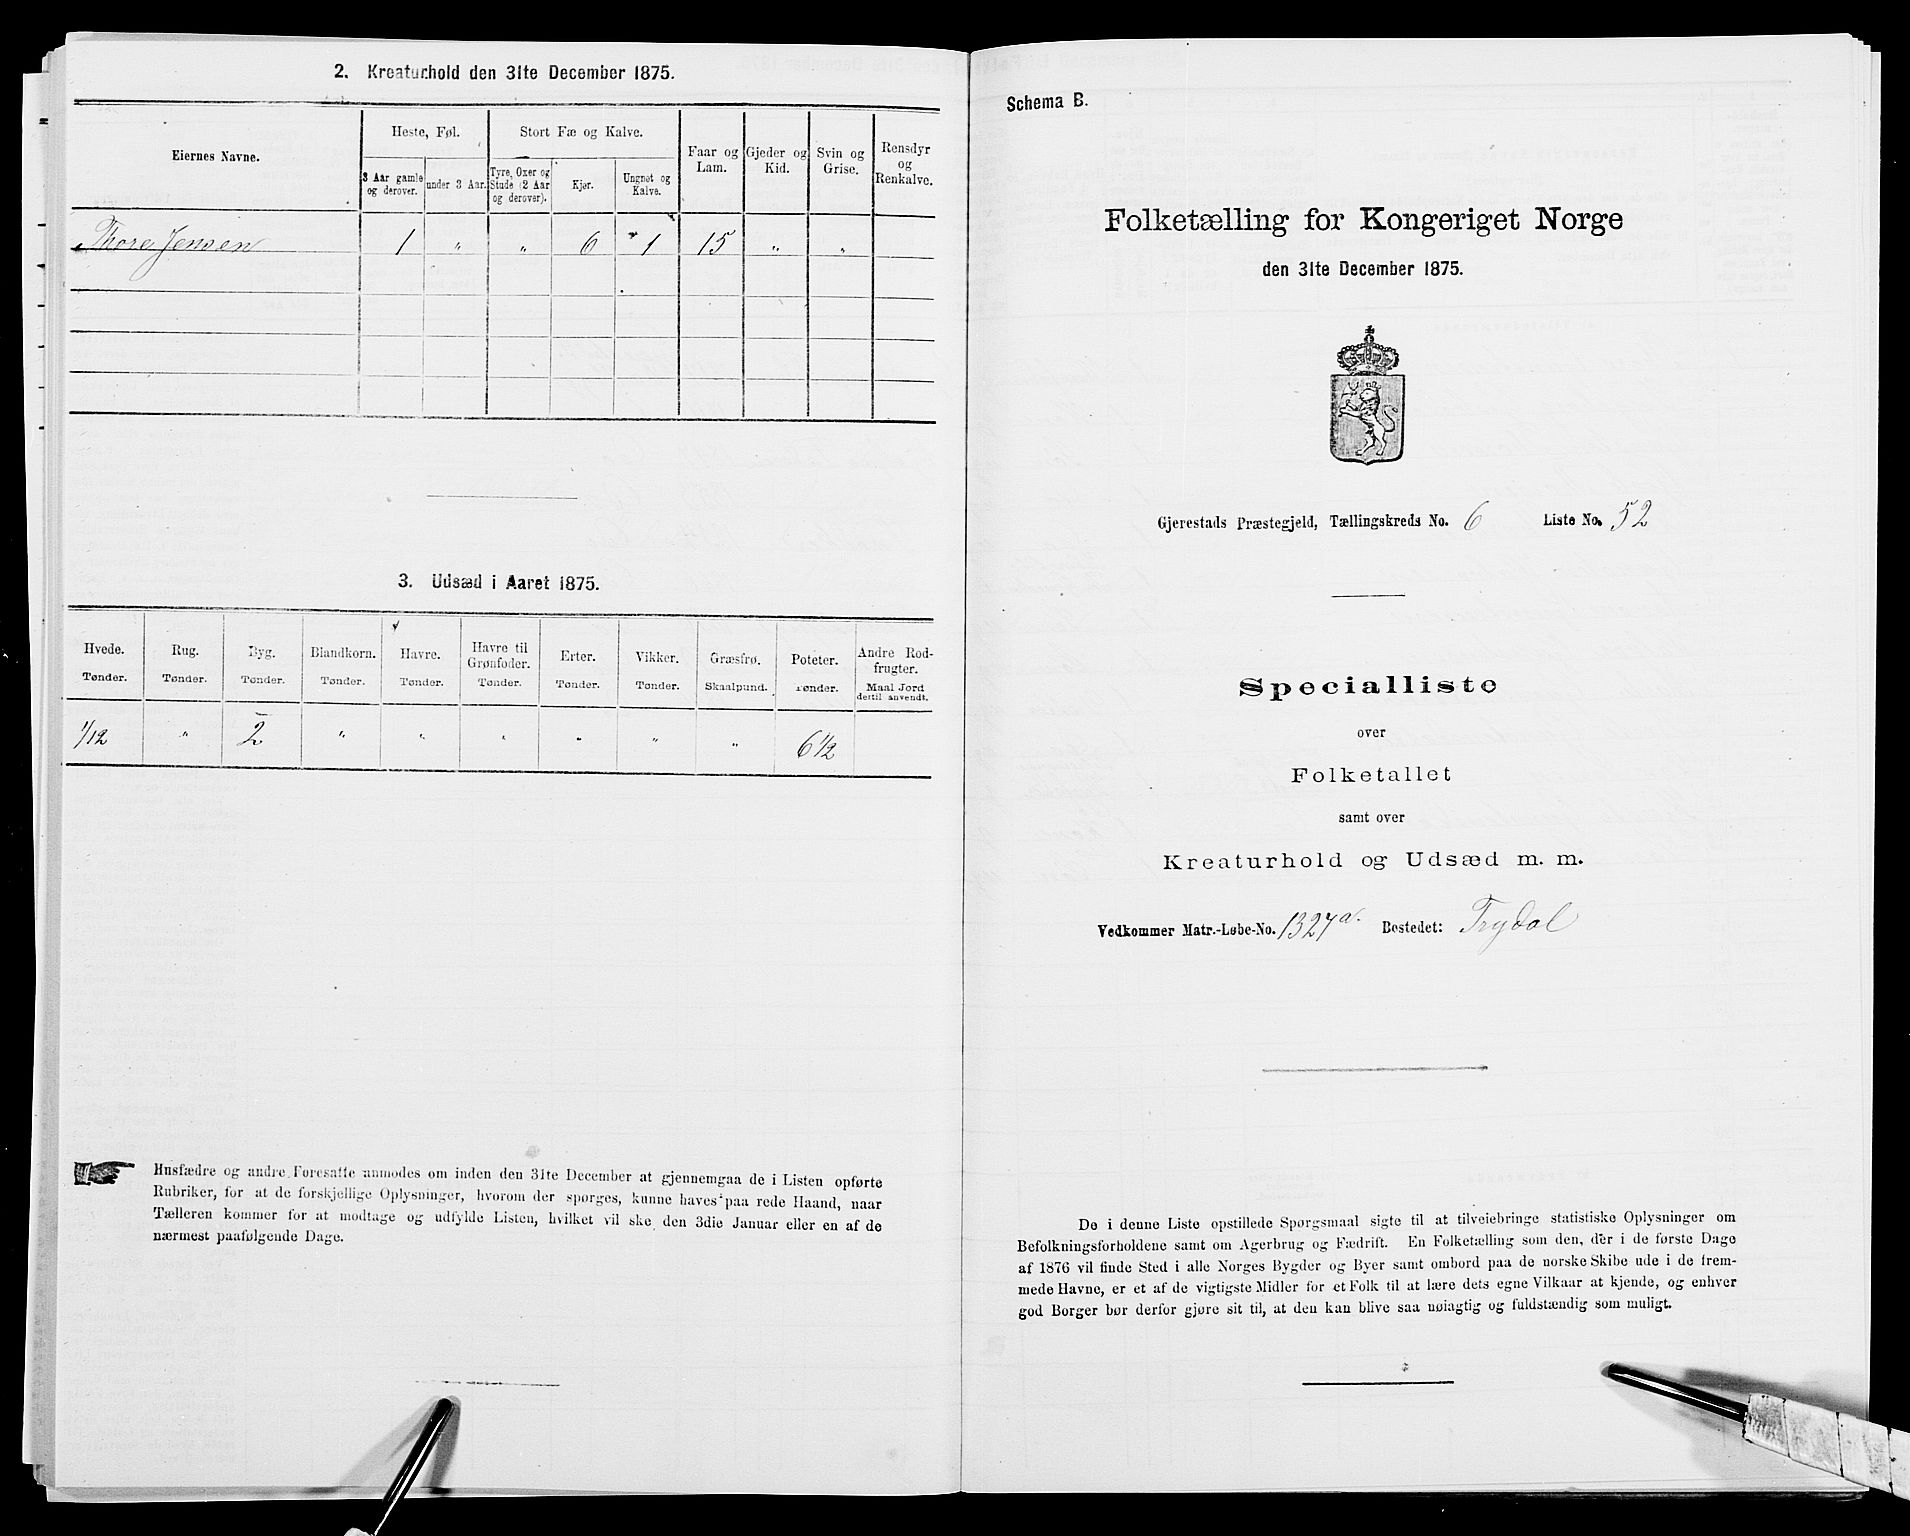 2. Kreaturhold den 31te December 1875.
Eiernes Navne.
Heste, Føl.
Stort Fæ og Kalve.
Faar og Lam.
Gjeder og Kid.
Svin og Grise.
Rensdyr og Renkalve.
3 Aar gamle og derover.
under 3 Aar.
Tyre, Oxer og Stude (2 Aar og derover).
Kjør.
Ungnøt og Kalve.
Thore Jensen 1 " " 6 1 15 " "
3. Udsæd i Aaret 1875.
Hvede. Rug. Byg. Blandkorn. Havre. Havre til Grønfoder. Erter. Vikker. Græsfrø. Poteter. Andre Rodfrugter.
Tønder. Tønder. Tønder. Tønder. Tønder. Tønder. Tønder. Tønder. Skaalpund. Tønder. Maal Jord dertil anvendt.
1/12 " 2 " " " " " " 6 1/2
Husfædre og andre Foresatte anmodes om inden den 31te December at gjennemgaa de i Listen opførte
Rubriker, for at de forskjellige Oplysninger, hvorom der spørges, kunne haves paa rede Haand, naar
Tælleren kommer for at modtage og udfylde Listen, hvilket vil ske den 3die Januar eller en af de
nærmest paafølgende Dage.
Schema B.
Folketælling for Kongeriget Norge
den 31te December 1875.
Gjerestads Præstegjeld, Tællingskreds No. 6 Liste No. 52
Specialliste
over
Folketallet
samt over
Kreaturhold og Udsæd m. m.
Vedkommer Matr.-Løbe-No. 1327a. Bostedet: Trydal
De i denne Liste opstillede Spørgsmaal sigte til at tilveiebringe statistiske Oplysninger om
Befolkningsforholdene samt om Agerbrug og Fædrift. En Folketælling som den, der i de første Dage
af 1876 vil finde Sted i alle Norges Bygder og Byer samt ombord paa de norske Skibe ude i de frem-
mede Havne, er et af de vigtigste Midler for et Folk til at lære dets egne Vilkaar at kjende, og enhver
god Borger bør derfor gjøre sit til, at den kan blive saa nøiagtig og fuldstændig som muligt.